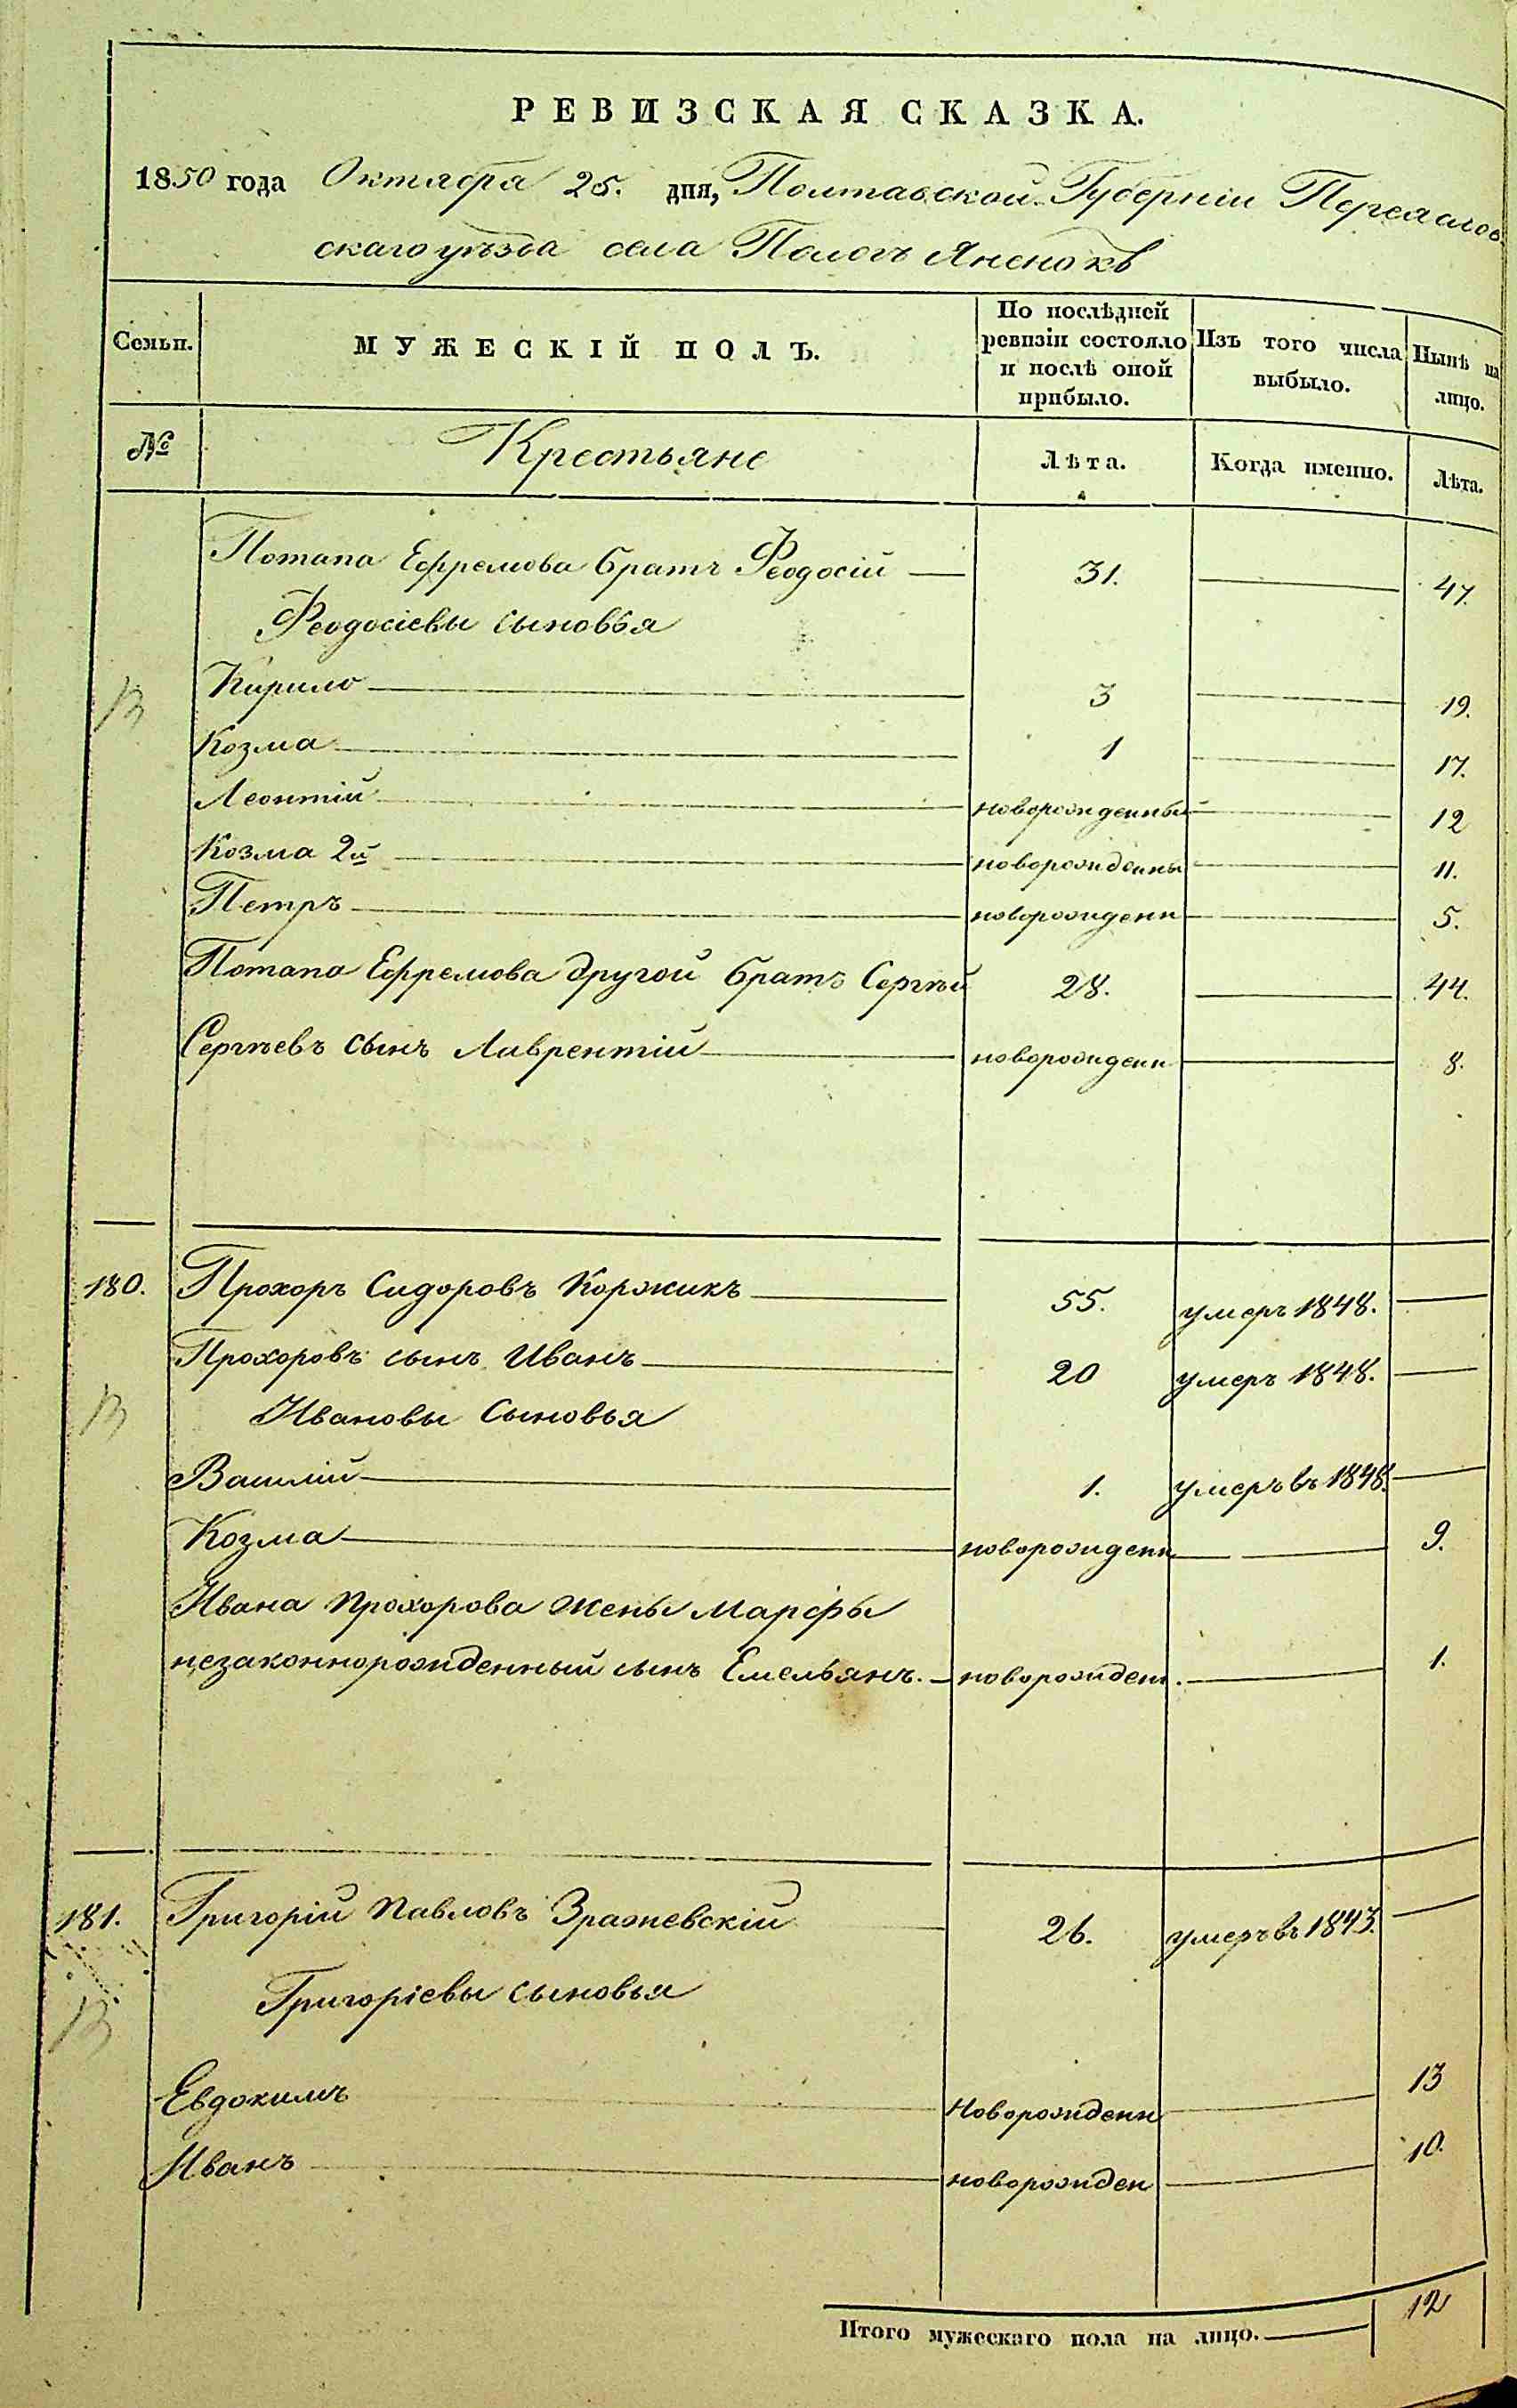 РЕВИЗСКАЯ СКАЗКА.
1850 года Октября 25. дня, Полтавской Губерніи Переяслов
скаго уѣзда села Пологъ Яненокъ
Семьи. МУЖЕСКІЙ ПОЛЪ. По послѣдней ревизіи состояло и послѣ оной прибыло. Изъ того числа выбыло. Нынѣ на лицо.
№ Крестьяне Лѣта. Когда именно. Лѣта.
Потапа Ефремова братъ Феодосій — 31. — 47.
Феодосіевы сыновья
Кирило — 3 — 19.
Козма — 1 — 17.
Леонтій — новорожденный — 12
Козма 2й — новорожденны — 11.
Петръ — новорожденн — 5.
Потапа Ефремова другой братъ Сергѣй 28. — 44.
Сергѣевъ сынъ Лаврентій — новорожденн — 8.
180. Прохоръ Сидоровъ Коржикъ — 55. умеръ 1848. —
Прохоровъ сынъ Иванъ — 20 умеръ 1848. —
Ивановы Сыновья
Василій — 1. умеръ въ 1848. —
Козма — новорожденн — 9.
Ивана Прохорова жены Марфы
незаконнорожденный сынъ Емельянъ. — новорожден. — 1.
181. Григорій Павловъ Зражевскій 26. умеръ въ 1843. —
Григоріевы сыновья
Евдокимъ — Новорожденн — 13
Иванъ — новорожден — 10.
Итого мужескаго пола на лицо. — 12